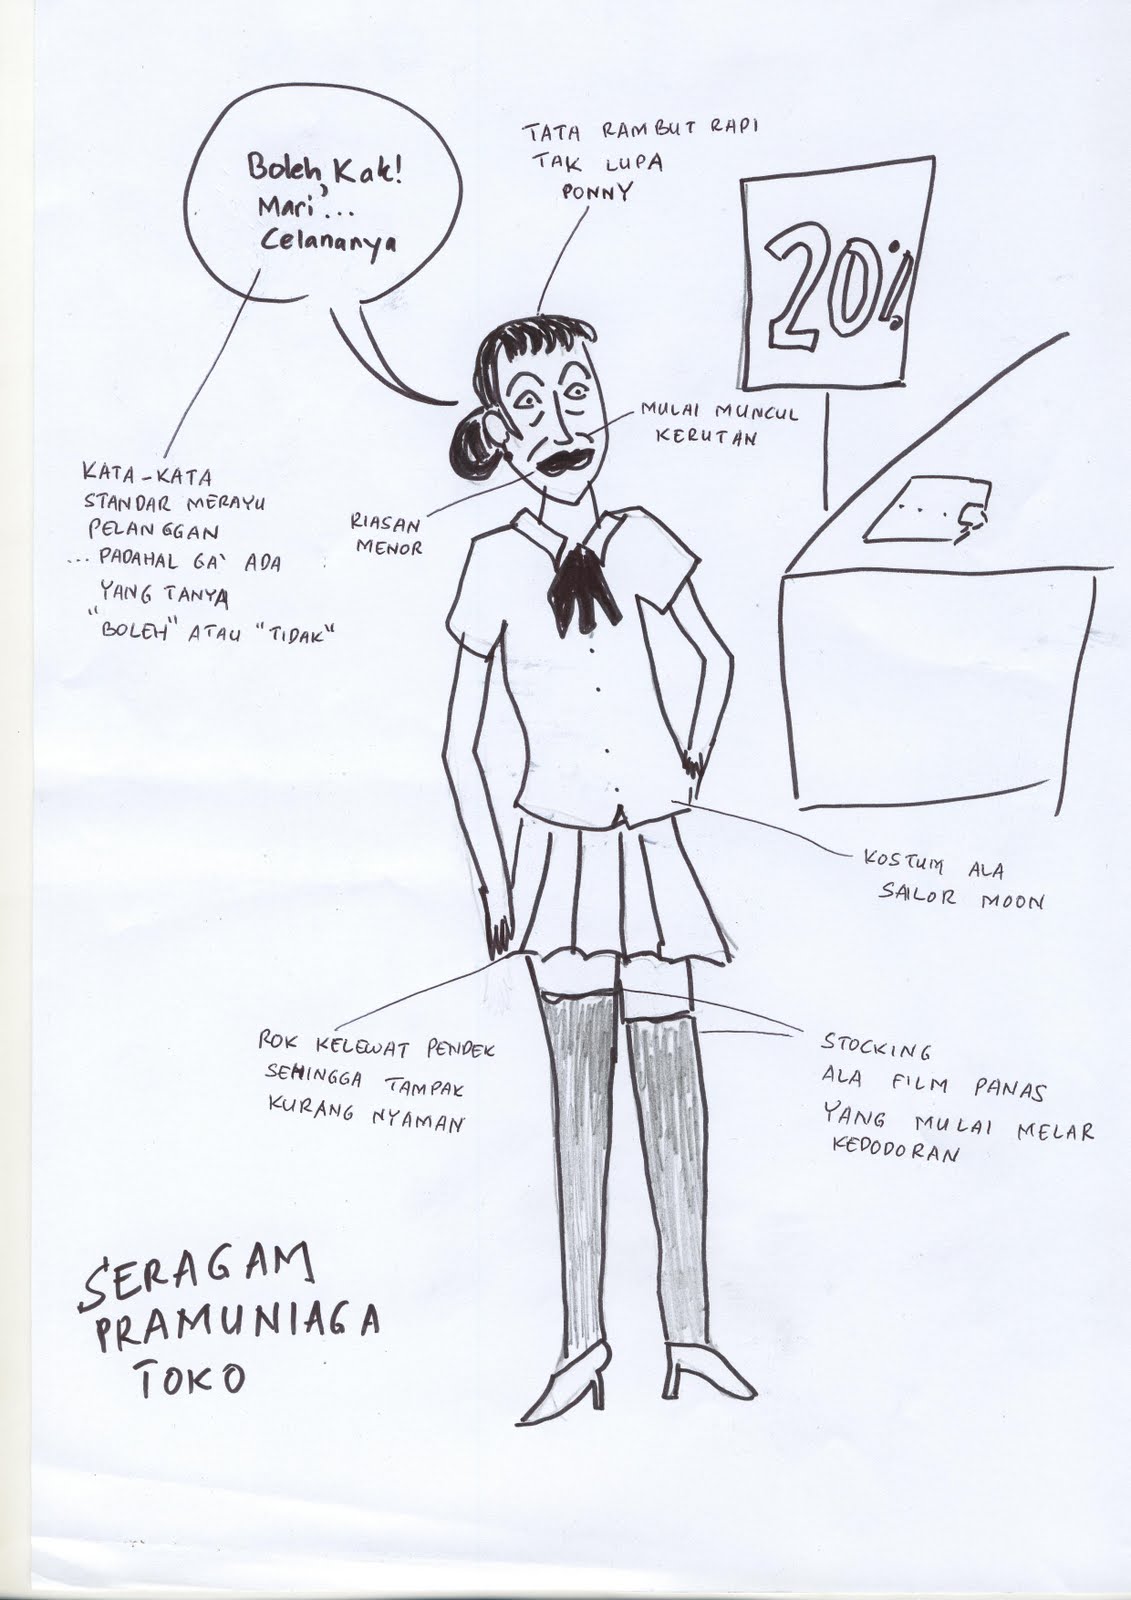 Boleh, Kak!
Mari...
Celananya
TATA RAMBUT RAPI
TAK LUPA
PONNY
20%
MULAI MUNCUL
KERUTAN
KATA-KATA
STANDAR MERAYU
PELANGGAN
... PADAHAL GA' ADA
YANG TANYA
"BOLEH" ATAU "TIDAK"
RIASAN
MENOR
KOSTUM ALA
SAILOR MOON
ROK KELEWAT PENDEK
SEHINGGA TAMPAK
KURANG NYAMAN
STOCKING
ALA FILM PANAS
YANG MULAI MELAR
KEDODORAN
SERAGAM
PRAMUNIAGA
TOKO